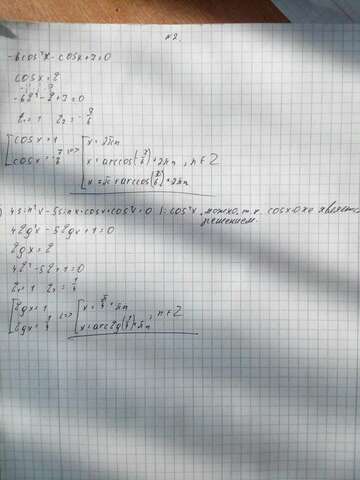 №2.
-6cos²x - cosx + 7 = 0
cosx = t
-6t² - t + 7 = 0
t₁ = 1 t₂ = -7/6
[cosx = 1 x = 2πn
cosx = -7/6 <=> x = arccos(7/6) + 2πn , n ∈ Z
x = π - arccos(7/6) + 2πn
) 4sin²x - 5sinx·cosx + cos²x = 0 |: cos²x, можно, т.к. cosx=0 не является
решением.
4tg²x - 5tgx + 1 = 0
tgx = t
4t² - 5t + 1 = 0
t₁ = 1 t₂ = 1/4
[tgx = 1 <=> [x = π/4 + πn
tgx = 1/4 x = arctg(1/4) + πn , n ∈ Z